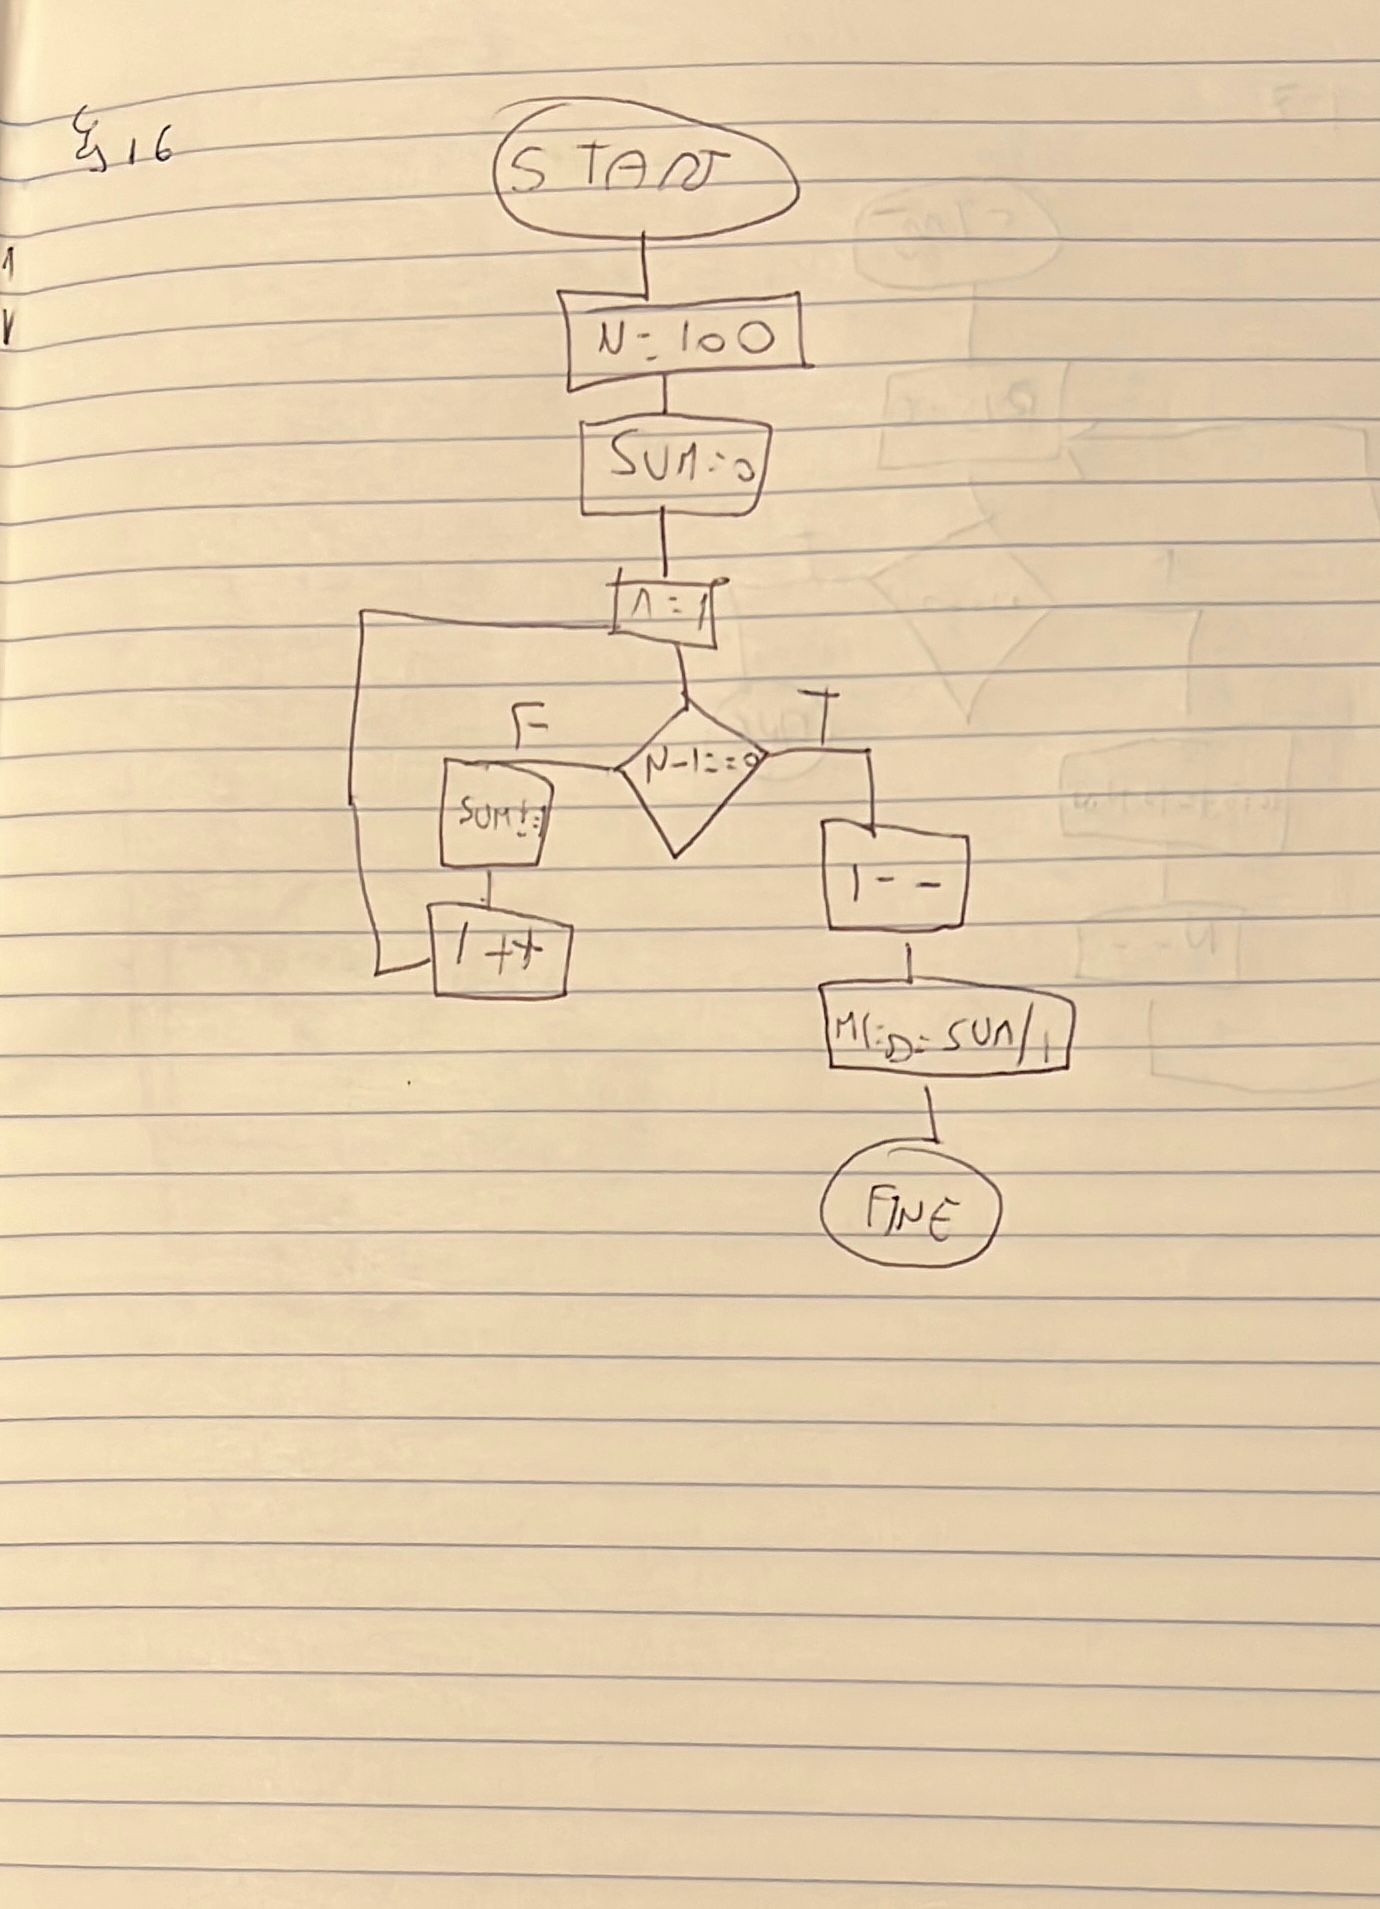 Es 16
START
N=100
SUM=0
1=1
F
T
N-1==0
SUM+=1
1--
1++
MED=SUM/1
FINE